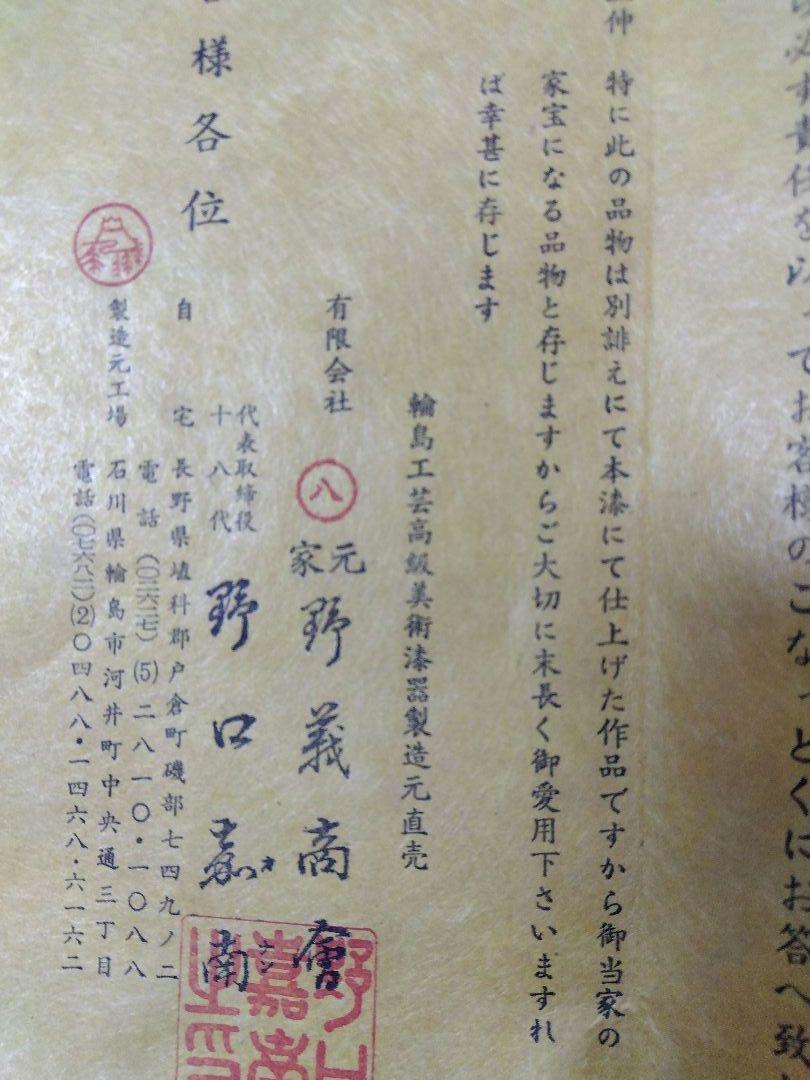 必ず責任を以ってお客様のごなっとくにお答へ致
伸
特に此の品物は別誂えにて本漆にて仕上げた作品ですから御当家の
家宝になる品物と存じますからご大切に末長く御愛用下さいますれ
ば幸甚に存じます
輪島工芸高級美術漆器製造元直売
有限会社 八 家元 野義商會
代表取締役
十八代 野口嘉南
自宅 長野県埴科郡戸倉町磯部七四九ノ二
電話(〇二六二七)(5)二八一〇・一〇八八
製造元工場 石川県輪島市河井町中央通三丁目
電話(〇七六八二)(2)〇四八八・一四六八・六一六二
様各位